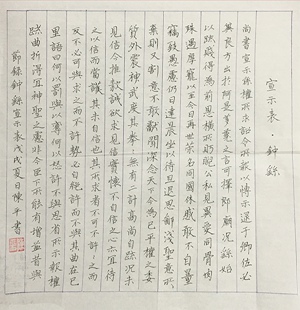 宣示表·鍾繇
尚書宣示孫權所求詔令所報所以博示逮于卿佐必
冀良方出於阿是芻蕘之言可擇郎廟況繇始
以疏賤得為前恩橫所盻睨公私見異愛同骨肉
殊遇厚寵以至今日再世榮名同國休慼敢不自量
竊致愚慮仍日達晨坐以待旦退思鄙淺聖意所
棄則又割意不敢獻聞深念天下今為已平權之委
質外震神武度其拳拳無有二計高尚自疏況未
見信今推款誠欲求見信實懷不自信之心亦宜待
之以信而當護其未自信也其所求者不可不許許之而
反不必可與求之而不許勢必自絕許而不與其曲在己
里語曰何以罰與以奪何以怒許不與思省所示報權
疏曲折得宜神聖之慮非今臣下所能有增益昔與
節錄鍾繇宣示表戊戌夏日陳平書